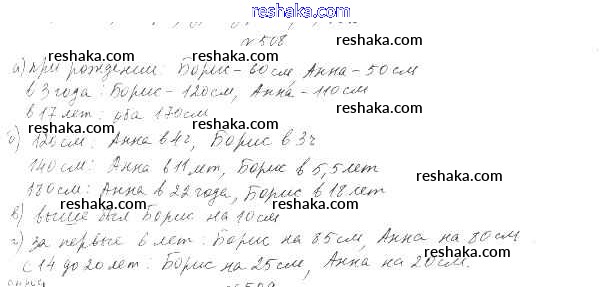 reshaka.com
№508
а) при рождении: Борис - 60 см, Анна - 50 см
в 3 года: Борис - 120 см, Анна - 110 см
в 17 лет: оба 170 см
б) 120 см: Анна в 4 г, Борис в 3 г
140 см: Анна в 11 лет, Борис в 5,5 лет
180 см: Анна в 22 года, Борис в 18 лет
в) выше был Борис на 10 см
г) за первые 6 лет: Борис на 85 см, Анна на 80 см
с 14 до 20 лет: Борис на 25 см, Анна на 20 см.
reshaka.com
reshaka.com
reshaka.com
reshaka.com
reshaka.com
reshaka.com
reshaka.com
reshaka.com